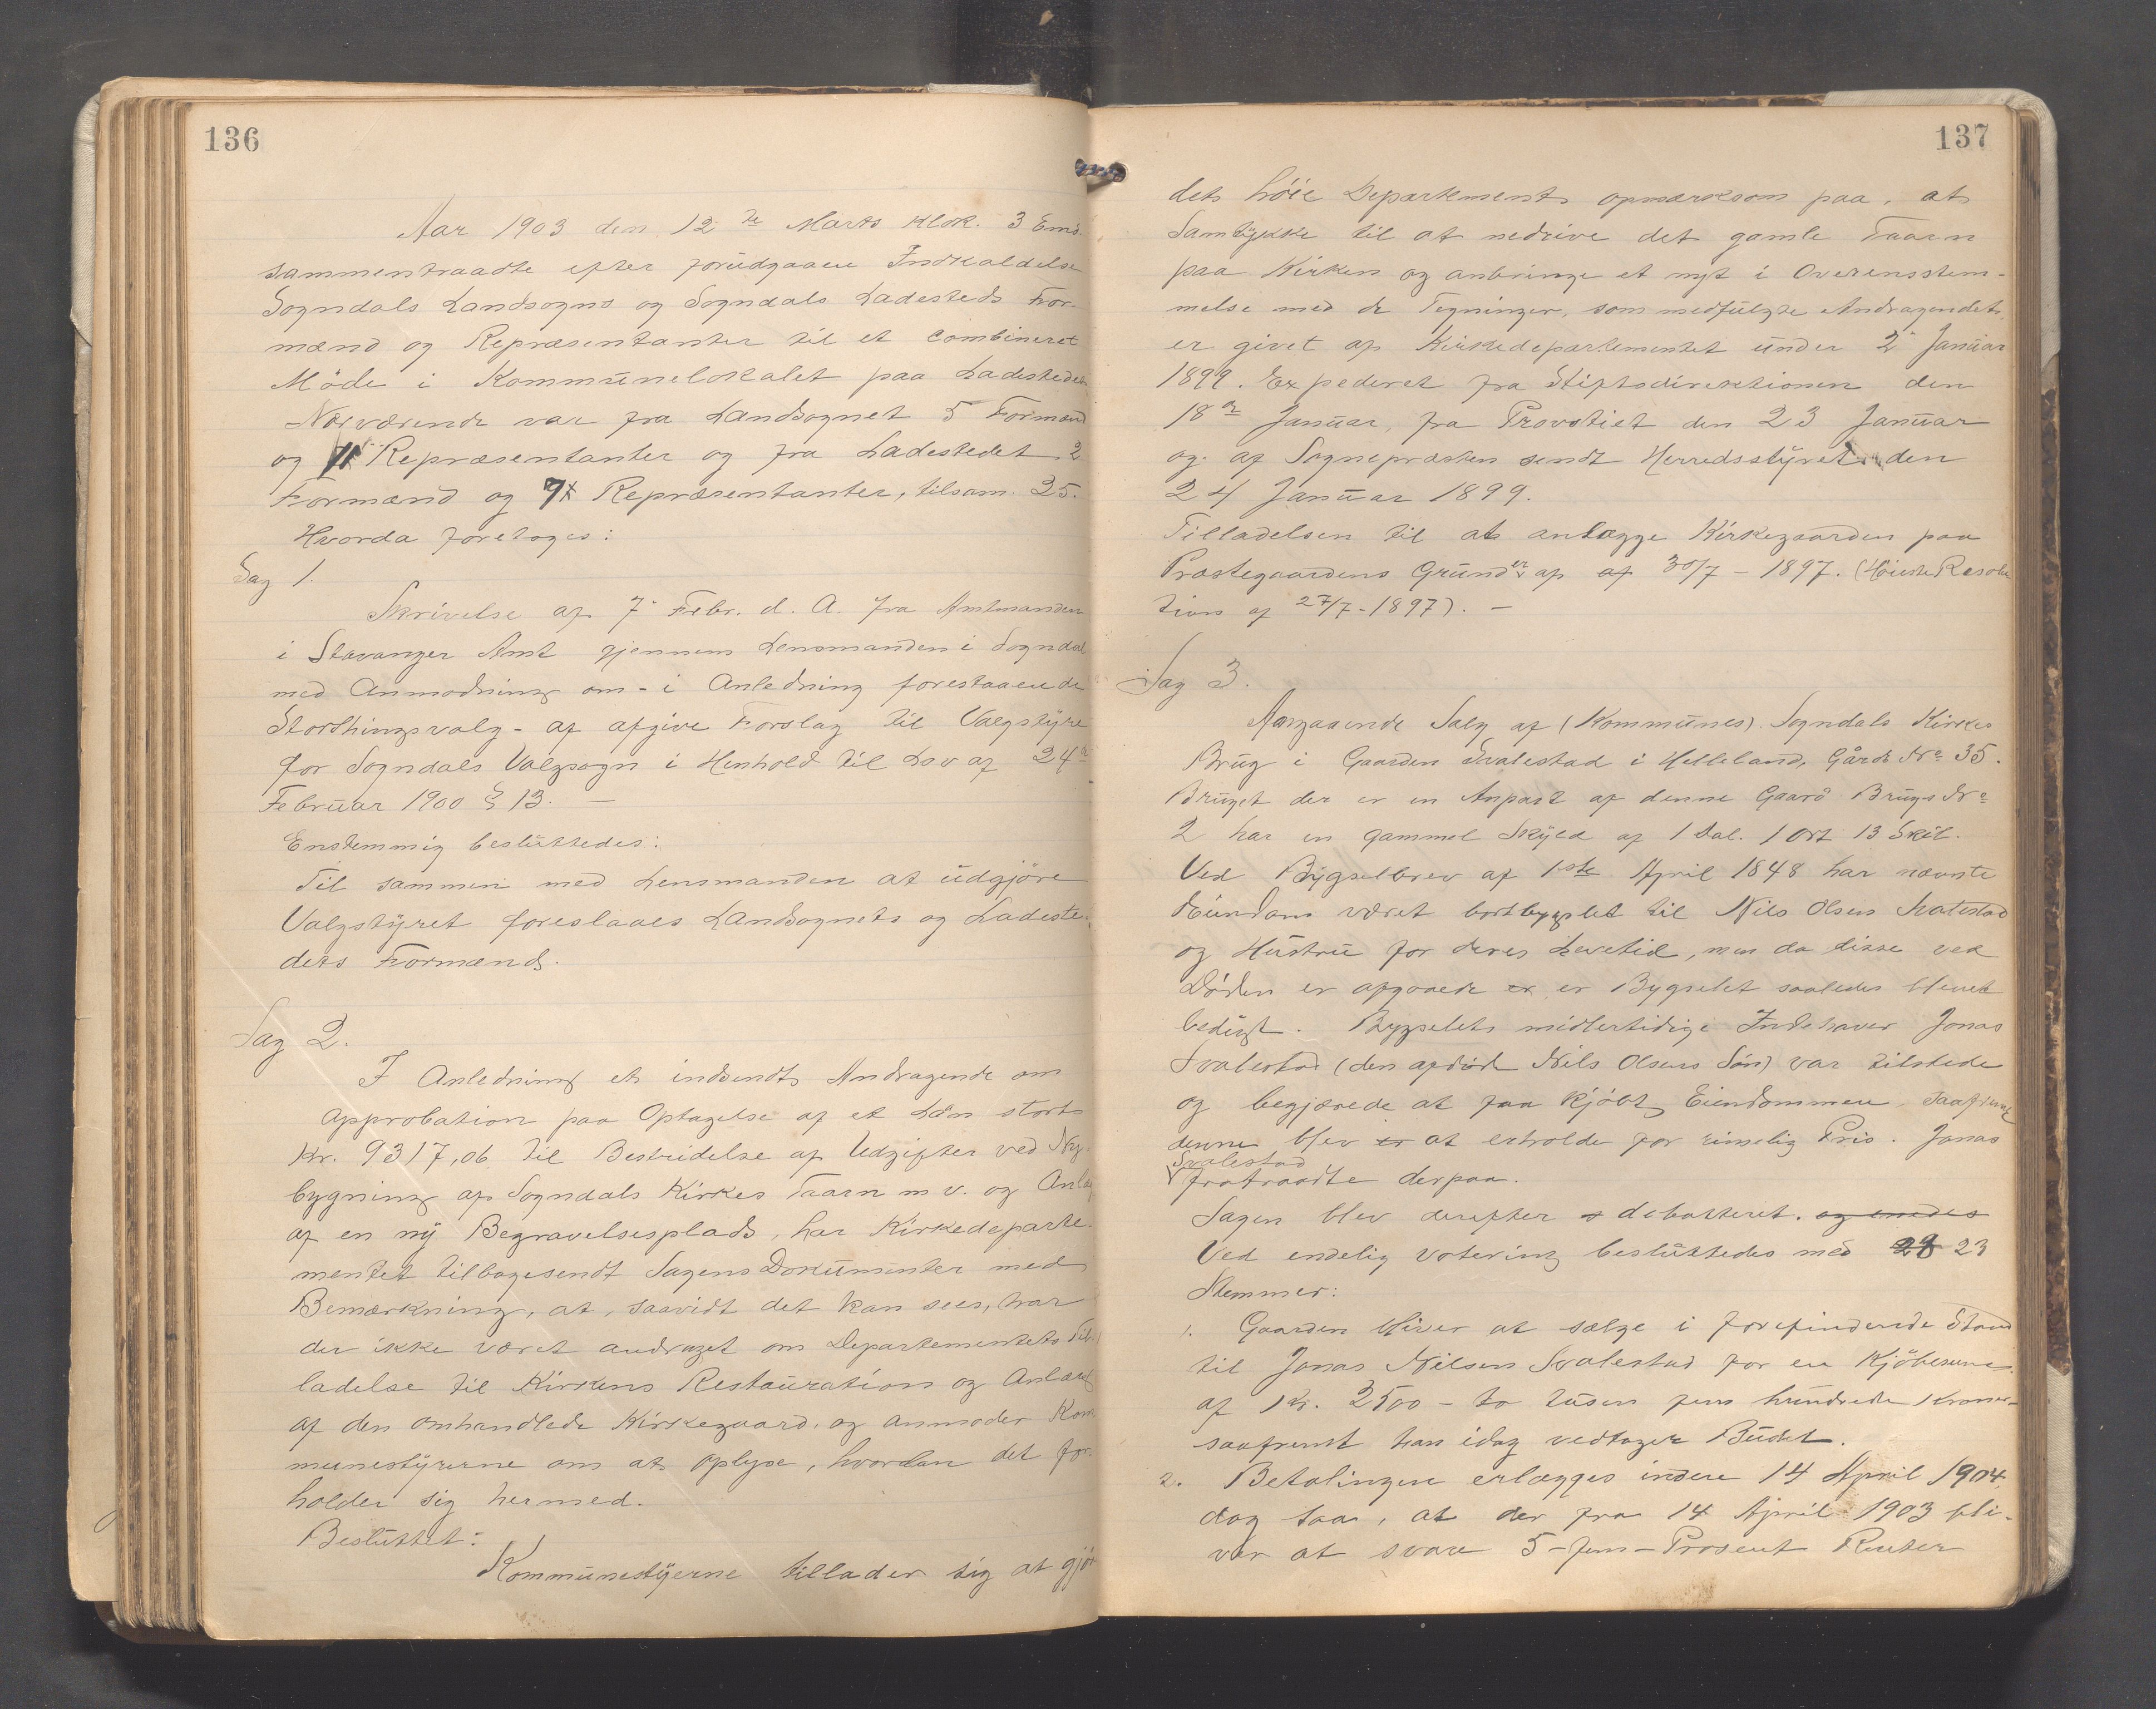 136
Aar 1903 den 12te Marts Klok. 3 Em's.
sammentraadte efter forudgaaen Indkaldelse
Sogndals Landsogns og Sogndals Ladesteds For-
mænd og Repræsentanter til et combineret
Møde i Kommunelokalet paa Ladestedet.
Nærværende var fra Landsognet 5 Formænd
og 11 Repræsentanter og fra Ladestedet 2
Formænd og 7 Repræsentanter, tilsam. 25.
Hvorda foretoges:
Sag 1.
Skrivelse af 7. Febr. d. A. fra Amtmanden
i Stavanger Amt gjennem Lensmanden i Sogndal
med Anmodning om - i Anledning forestaaende
Storthingsvalg - af afgive Forslag til Valgstyre
for Sogndals Valgsogn i Henhold til Lov af 24de
Februar 1900 § 13. —
Enstemmig besluttedes:
Til sammen med Lensmanden at udgjöre
Valgstyret foreslaaes Landsognets og Ladeste-
dets Formænd.
Sag 2.
I Anledning et indsendt Andragende om
Approbation paa Optagelse af et Lån stort
Kr. 9317,06 til Bestridelse af Udgifter ved Ny-
bygning af Sogndals Kirkes Taarn m v. og Anlæg
af en ny Begravelsesplads, har Kirkedeparte-
mentet tilbagesendt Sagens Dokumenter med
Bemærkning, at, saavidt det kan sees, har
der ikke været andraget om Departementets Til-
ladelse til Kirkens Restauration og Anlæg
af den omhandlede Kirkegaard, og anmoder Kom
munestyrerne om at oplyse, hvordan det for-
holder sig hermed.
Besluttet:
Kommunestyerne tillader sig at gjör
137
dets höie Departement opmærksom paa, at
Samtykke til at nedrive det gamle Taarn
paa Kirken og anbringe et nyt i Overensstem-
melse med de Tegninger, som medfulgte Andragendet,
er givet af Kirkedepartementet under 2 Januar
1899. Expederet fra Stiftsdirektionen den
18de Januar, fra Provstiet den 23 Januar
og af Sognepræsten sendt Herredsstyret den
24 Januar 1899.
Tilladelsen til at anlægge Kirkegaarden paa
Præstegaardens Grund er af af 30/7 - 1897. (Höieste Resolu
tion af 27/7 - 1897). —
Sag 3.
Angaaende Salg af (Kommunes). Sogndals Kirkes
Brug i Gaarden Svalestad i Helleland, Gårds No 35.
Bruget der er en Anpart af denne Gaard Brugs No
2 har en gammel Skyld af 1 Dal. 1 Ort 13 Skil.
Ved Bygselbrev af 1ste April 1848 har nævnte
Eiendom været bortbygslet til Nils Olsen Svalestad
og Hustru for deres Levetid, men da disse ved
Döden er afgaaede er er Bygselet saaledes blevet
ledigt. Bygselets midlertidige Indehaver Jonas
Svalestad (den afdöde Nils Olsens Sön) var tilstede
og begjærede at faa kjöbt Eiendommen, saafremt
denne blev er at erholde for rimelig Pris. Jonas
Svalestad
fratraadte derpaa.
Sagen blev derefter s debatteret. og enedes
Ved endelig votering besluttedes med 23
Stemmer:
1. Gaarden bliver at sælge i forefindende Stand
til Jonas Nilsen Svalestad for en Kjöbesum
af Kr. 2500 - to tusen fem hundrede Kroner -
saafremt han idag vedtager Budet.
2. Betalingen erlægges inden 14 April 1904,
dog saa, at der fra 14 April 1903 bli-
ver at svare 5 - fem - Prosent Renter